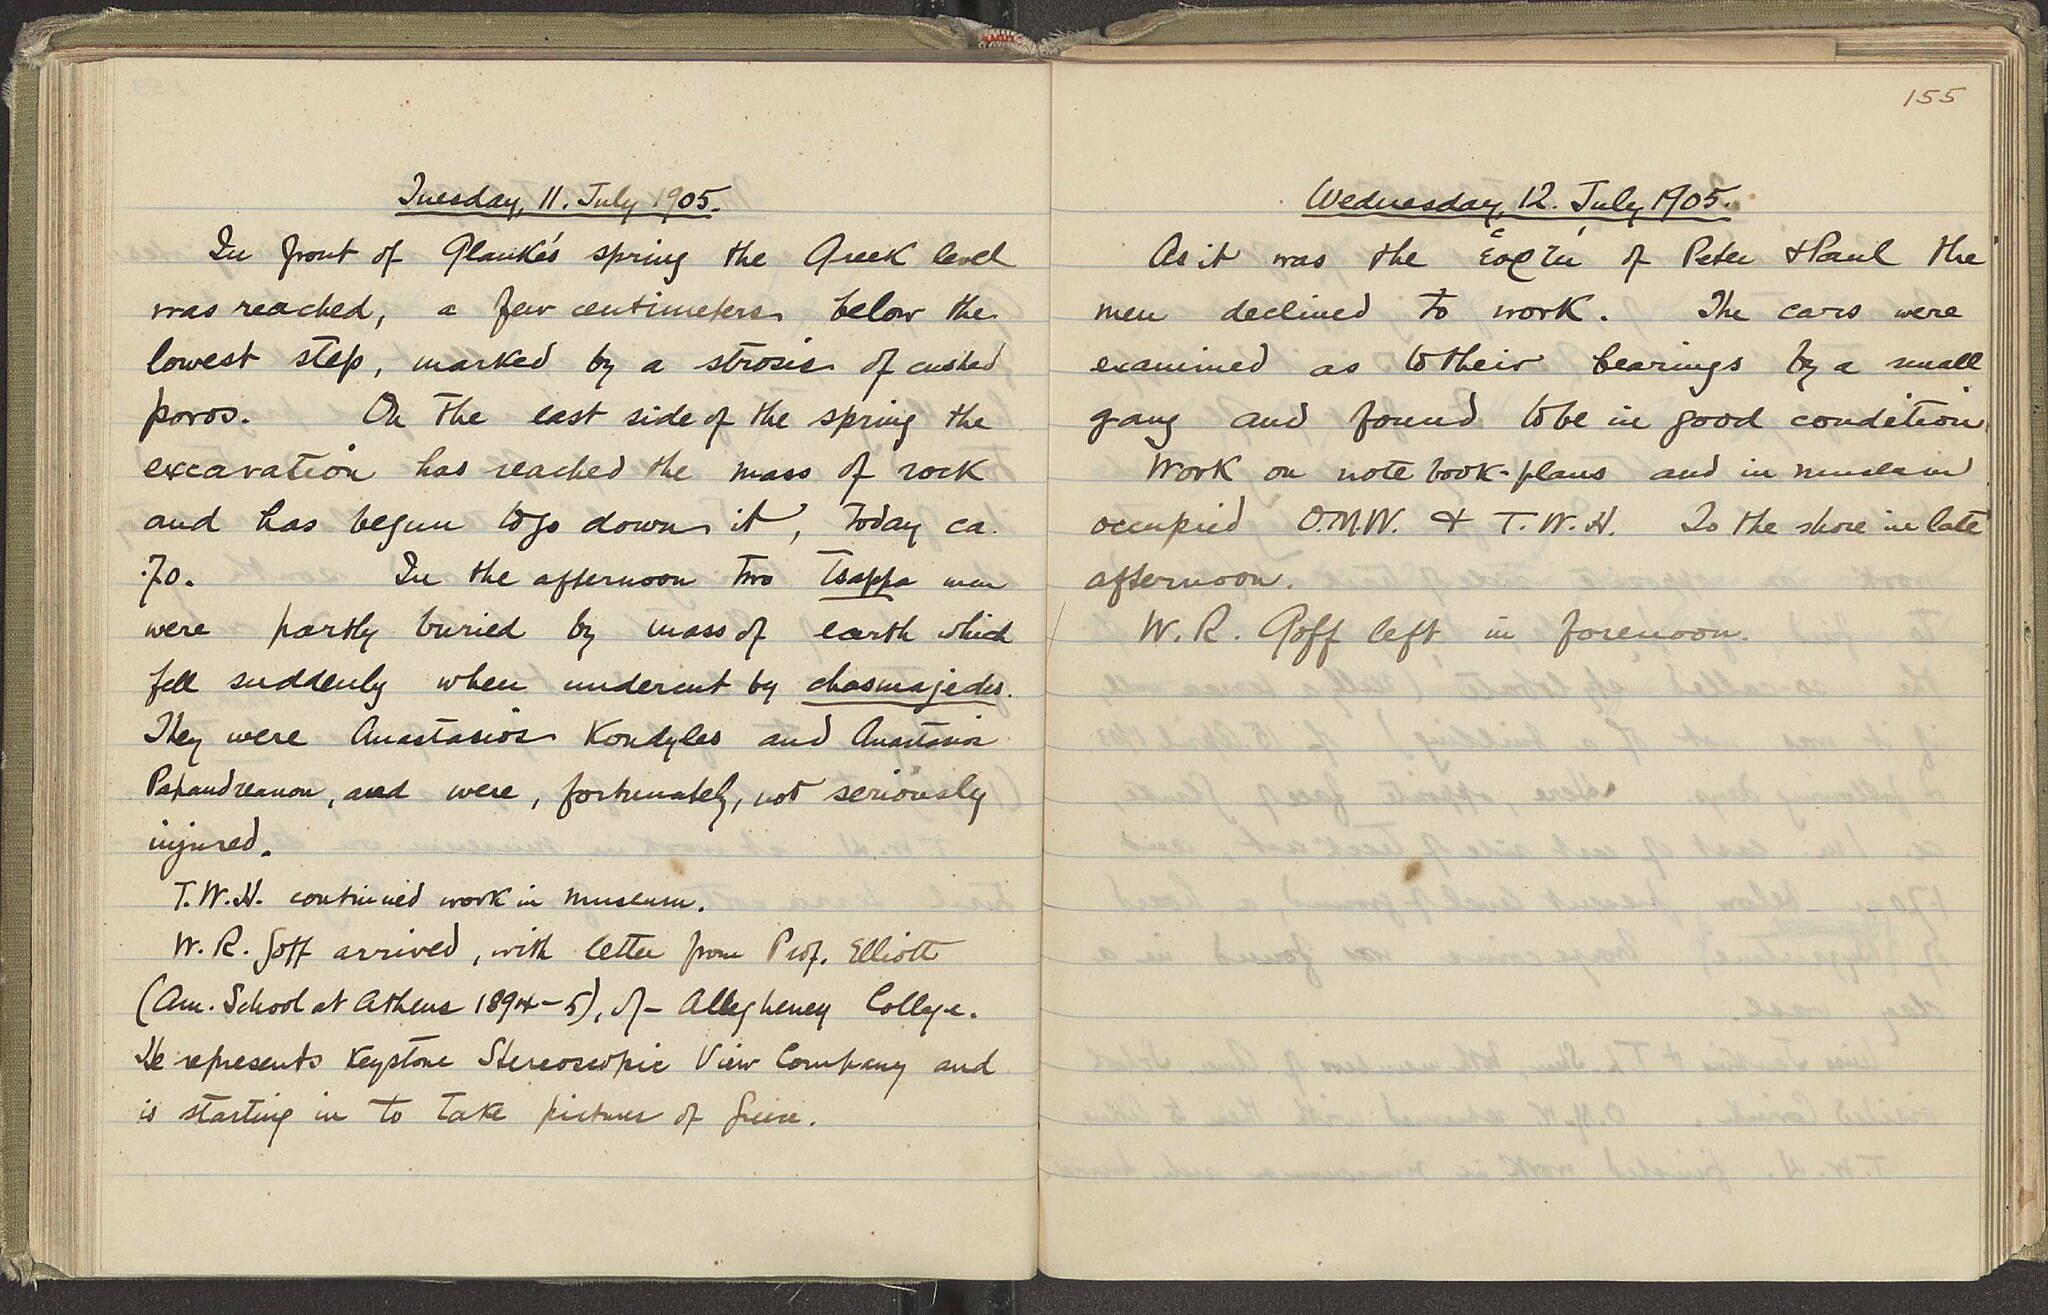 Tuesday, 11. July 1905.
In front of Glauke's spring the Greek level
was reached, a few centimeters below the
lowest step, marked by a strosis of cushed
poros. On the east side of the spring the
excavation has reached the mass of rock
and has begun to go down it, today ca.
.70. In the afternoon two tsappa men
were partly buried by mass of earth which
fell suddenly when undercut by chasmajedes.
They were Anastasios Kondyles and Anastasios
Papandreanou, and were, fortunately, not seriously
injured.
T.W.H. continued work in museum.
W. R. Goff arrived, with letter from Prof. Elliott
(Am. School at Athens 1894-5), of - Allegheney College.
He represents Keystone Stereoscopic View Company and
is starting in to take pictures of Greece.
155
Wednesday, 12. July 1905.
As it was the ἑορτή of Peter & Paul the
men declined to work. The cars were
examined as to their bearings by a small
gang and found to be in good condition.
Work on note book-plans and in museum
occupied O.M.W. & T.W.H. To the shore in late
afternoon.
W. R. Goff left in forenoon.